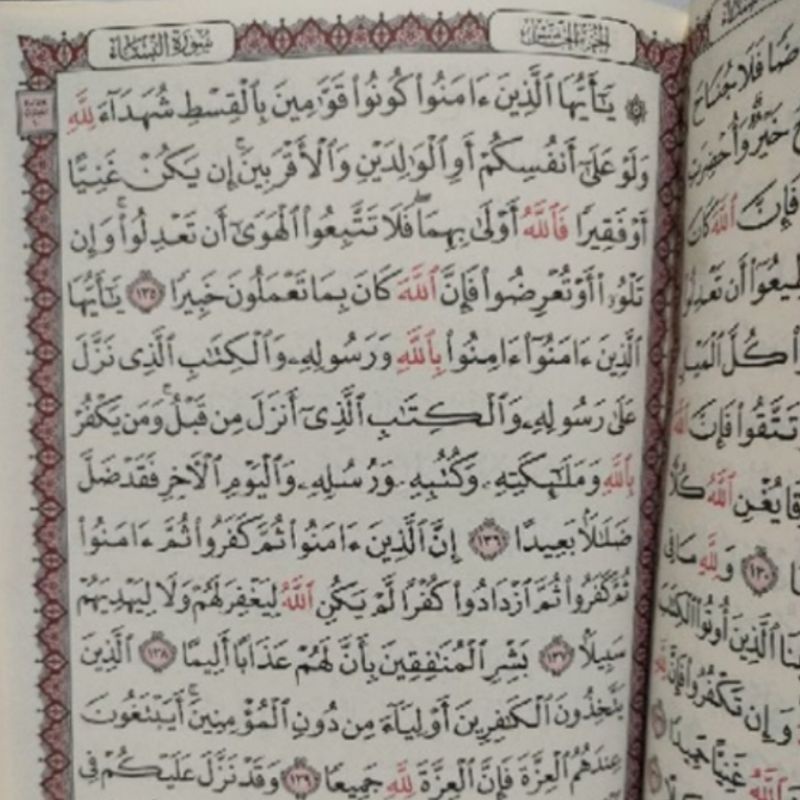 سورة النساء
الجزء الخامس
۞ يَٰٓأَيُّهَا ٱلَّذِينَ ءَامَنُوا۟ كُونُوا۟ قَوَّٰمِينَ بِٱلْقِسْطِ شُهَدَآءَ لِلَّهِ
وَلَوْ عَلَىٰٓ أَنفُسِكُمْ أَوِ ٱلْوَٰلِدَيْنِ وَٱلْأَقْرَبِينَ ۚ إِن يَكُنْ غَنِيًّا
أَوْ فَقِيرًا فَٱللَّهُ أَوْلَىٰ بِهِمَا ۖ فَلَا تَتَّبِعُوا۟ ٱلْهَوَىٰٓ أَن تَعْدِلُوا۟ ۚ وَإِن
تَلْوُۥٓا۟ أَوْ تُعْرِضُوا۟ فَإِنَّ ٱللَّهَ كَانَ بِمَا تَعْمَلُونَ خَبِيرًا ١٣٥ يَٰٓأَيُّهَا
ٱلَّذِينَ ءَامَنُوٓا۟ ءَامِنُوا۟ بِٱللَّهِ وَرَسُولِهِۦ وَٱلْكِتَٰبِ ٱلَّذِى نَزَّلَ
عَلَىٰ رَسُولِهِۦ وَٱلْكِتَٰبِ ٱلَّذِىٓ أَنزَلَ مِن قَبْلُ ۚ وَمَن يَكْفُرْ
بِٱللَّهِ وَمَلَٰٓئِكَتِهِۦ وَكُتُبِهِۦ وَرُسُلِهِۦ وَٱلْيَوْمِ ٱلْءَاخِرِ فَقَدْ ضَلَّ
ضَلَٰلًۢا بَعِيدًا ١٣٦ إِنَّ ٱلَّذِينَ ءَامَنُوا۟ ثُمَّ كَفَرُوا۟ ثُمَّ ءَامَنُوا۟
ثُمَّ كَفَرُوا۟ ثُمَّ ٱزْدَادُوا۟ كُفْرًا لَّمْ يَكُنِ ٱللَّهُ لِيَغْفِرَ لَهُمْ وَلَا لِيَهْدِيَهُمْ
سَبِيلًۢا ١٣٧ بَشِّرِ ٱلْمُنَٰفِقِينَ بِأَنَّ لَهُمْ عَذَابًا أَلِيمًا ١٣٨ ٱلَّذِينَ
يَتَّخِذُونَ ٱلْكَٰفِرِينَ أَوْلِيَآءَ مِن دُونِ ٱلْمُؤْمِنِينَ ۚ أَيَبْتَغُونَ
عِندَهُمُ ٱلْعِزَّةَ فَإِنَّ ٱلْعِزَّةَ لِلَّهِ جَمِيعًا ١٣٩ وَقَدْ نَزَّلَ عَلَيْكُمْ فِى
فَلَا جُنَاحَ
خَيْرٌ ۗ وَأُحْضِرَتِ
فَإِنَّ ٱللَّهَ كَانَ
أَن تَعْدِلُوا۟
كُلَّ ٱلْمَيْلِ
تَتَّقُوا۟ فَإِنَّ ٱللَّهَ
يُغْنِ ٱللَّهُ كُلًّا
١٣٠ وَلِلَّهِ مَا فِى
ٱلَّذِينَ أُوتُوا۟ ٱلْكِتَٰبَ
وَإِن تَكْفُرُوا۟ فَإِنَّ لِلَّهِ
غَنِيًّا حَمِيدًا